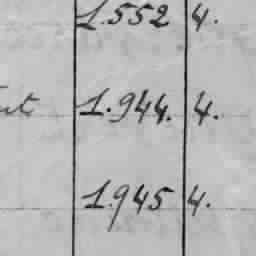 1.552 4.
1.944. 4.
1.945 4.